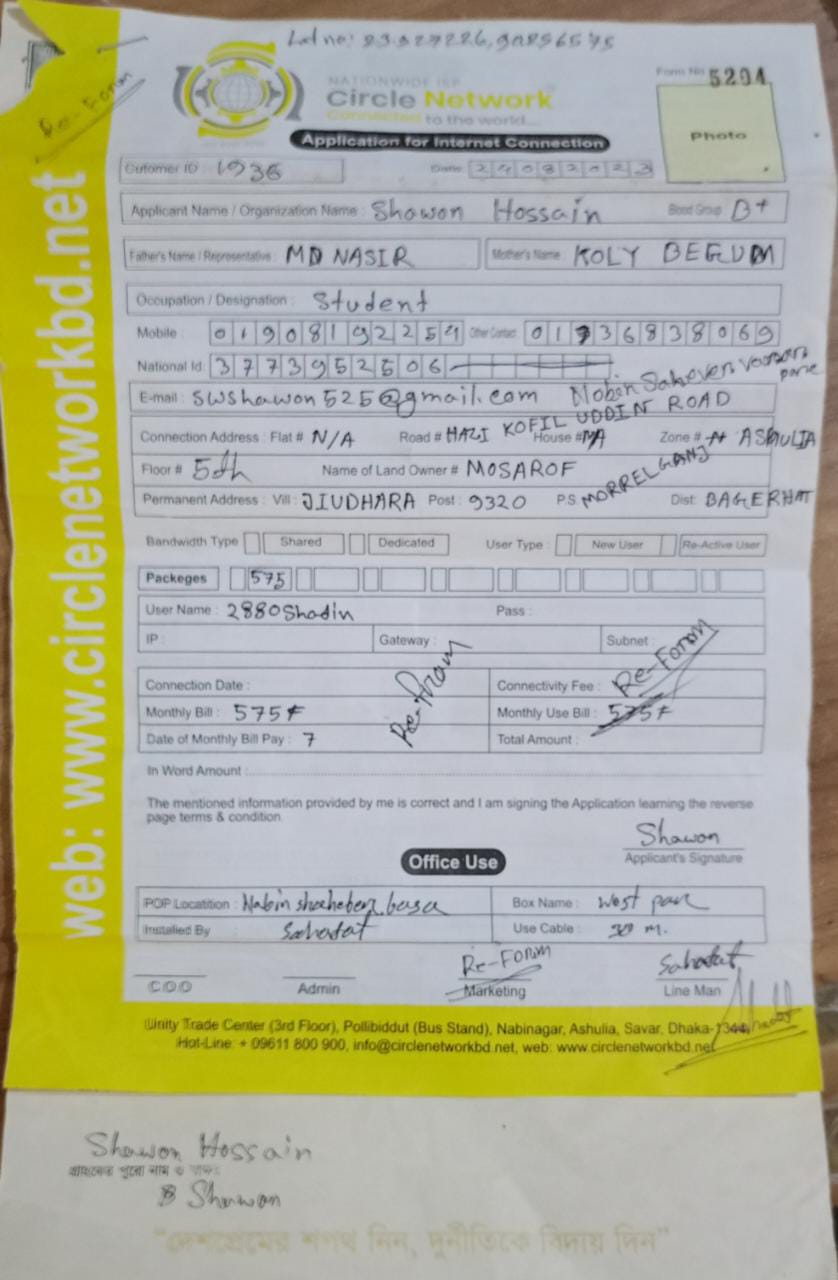 Lat no: 23.927226,90.256575
Re-Form
NATIONWIDE ISP
Form No 5294
Circle Network
Connected to the world...
Photo
Application for Internet Connection
Cutomer ID : 1936
Date: 24082023
Applicant Name / Organization Name : Shawon Hossain Blood Group : B+
Father's Name / Representative : MD NASIR Mother's Name : KOLY BEGUM
Occupation / Designation : Student
Mobile : 01908192254 Other Contact : 01736838069
National Id: 3773952506
E-mail : swshawon525@gmail.com
Connection Address : Flat # N/A Road # HAZI KOFIL UDDIN ROAD House # NA Zone # ASHULIA
Floor # 5th Name of Land Owner # MOSAROF
Permanent Address : Vill : JIUDHARA Post : 9320 P.S MORRELGANJ Dist: BAGERHAT
Bandwidth Type Shared Dedicated User Type : New User Re-Active User
Packeges 575
User Name : 2880Shadin Pass :
IP : Gateway : Subnet :
Connection Date : Connectivity Fee : Re-Form
Monthly Bill : 575 Monthly Use Bill : 575
Date of Monthly Bill Pay : 7 Total Amount :
In Word Amount :
The mentioned information provided by me is correct and I am signing the Application learning the reverse
page terms & condition.
Shawon
Applicant's Signature
Office Use
POP Locatition : Nabin shaheber basa Box Name : West para
Installed By Sahadat Use Cable : 30 m.
Re-Form Sahadat
COO Admin Marketing Line Man
Unity Trade Center (3rd Floor), Pollibiddut (Bus Stand), Nabinagar, Ashulia, Savar, Dhaka-1344,
Hot-Line: + 09611 800 900, info@circlenetworkbd.net, web: www.circlenetworkbd.net
web: www.circlenetworkbd.net
Shawon Hossain
গ্রাহকের পুরো নাম ও
Shawon
"দেশপ্রেমের শপথ নিন, দুর্নীতিকে বিদায় দিন"